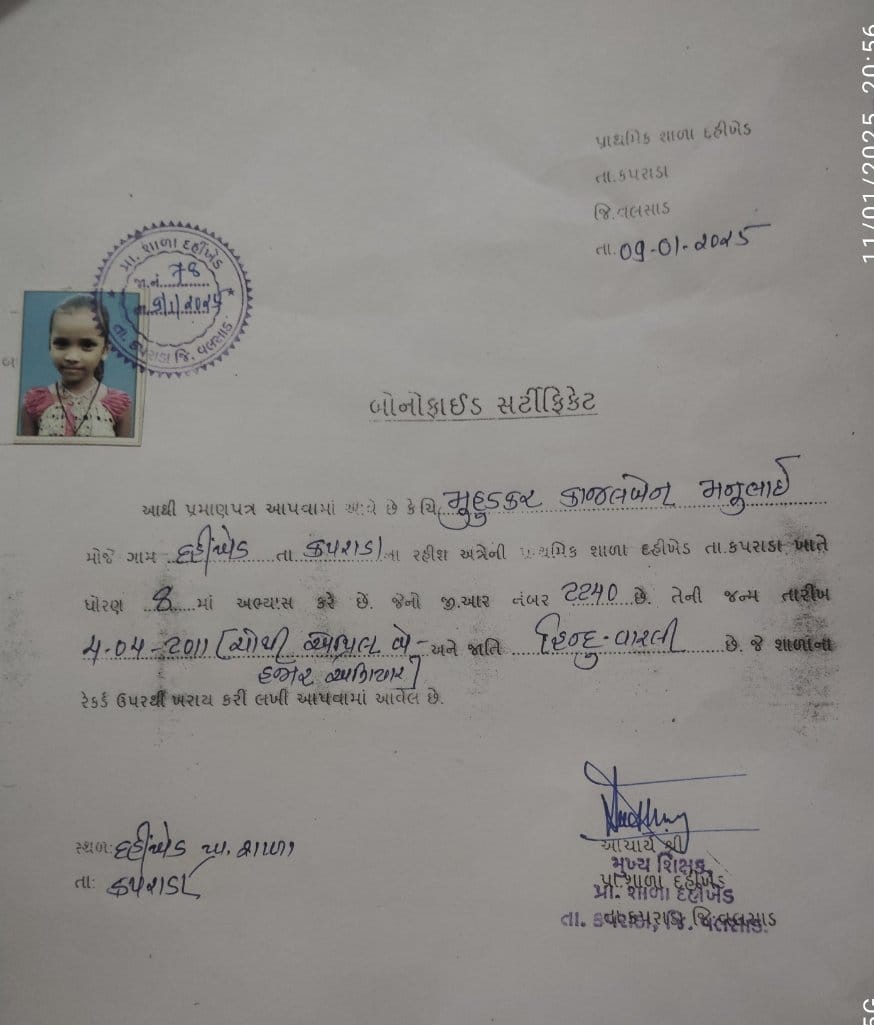 11/01/2025 20:56
પ્રાથમિક શાળા દહીખેડ
તા.કપરાડા
જિ.વલસાડ
તા. 09-01-2025
પ્રા. શાળા દહીખેડ
જા.નં. 78
તા. 9/1/2025
તા. કપરાડા જિ. વલસાડ
બોનોફાઈડ સર્ટીફિકેટ
આથી પ્રમાણપત્ર આપવામાં આવે છે કે ચિ. મુહુડકર કાજલબેન મનુભાઈ
મોજે ગામ દહીંખેડ તા કપરાડા ના રહીશ અત્રેની પ્રાથમિક શાળા દહીખેડ તા.કપરાડા ખાતે
ધોરણ 8 માં અભ્યાસ કરે છે. જેનો જી.આર નંબર 2240 છે. તેની જન્મ તારીખ
4-04-2011 [ચોથી એપ્રિલ બે- અને જાતિ હિન્દુ-વારલી છે. જે શાળાના
હજાર અગિયાર]
રેકર્ડ ઉપરથી ખરાય કરી લખી આપવામાં આવેલ છે.
સ્થળ: દહીંખેડ પ્રા. શાળા
તા: કપરાડા
આચાર્ય શ્રી
મુખ્ય શિક્ષક
પ્રા.શાળા દહીખેડ
પ્રા. શાળા દહીખેડ
તા.કપરાડા જિ.વલસાડ
તા. કપરાડા, જિ. વલસાડ.